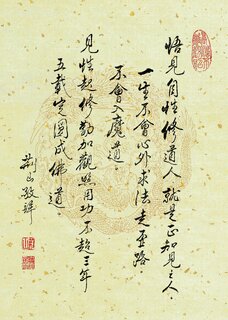 悟見自性修道人就是正知見之人.
一生不會心外求法走歪路
不會入魔道.
見性起修勤加觀照用功不超三年
五載定圓成佛道
荊山敬鐸